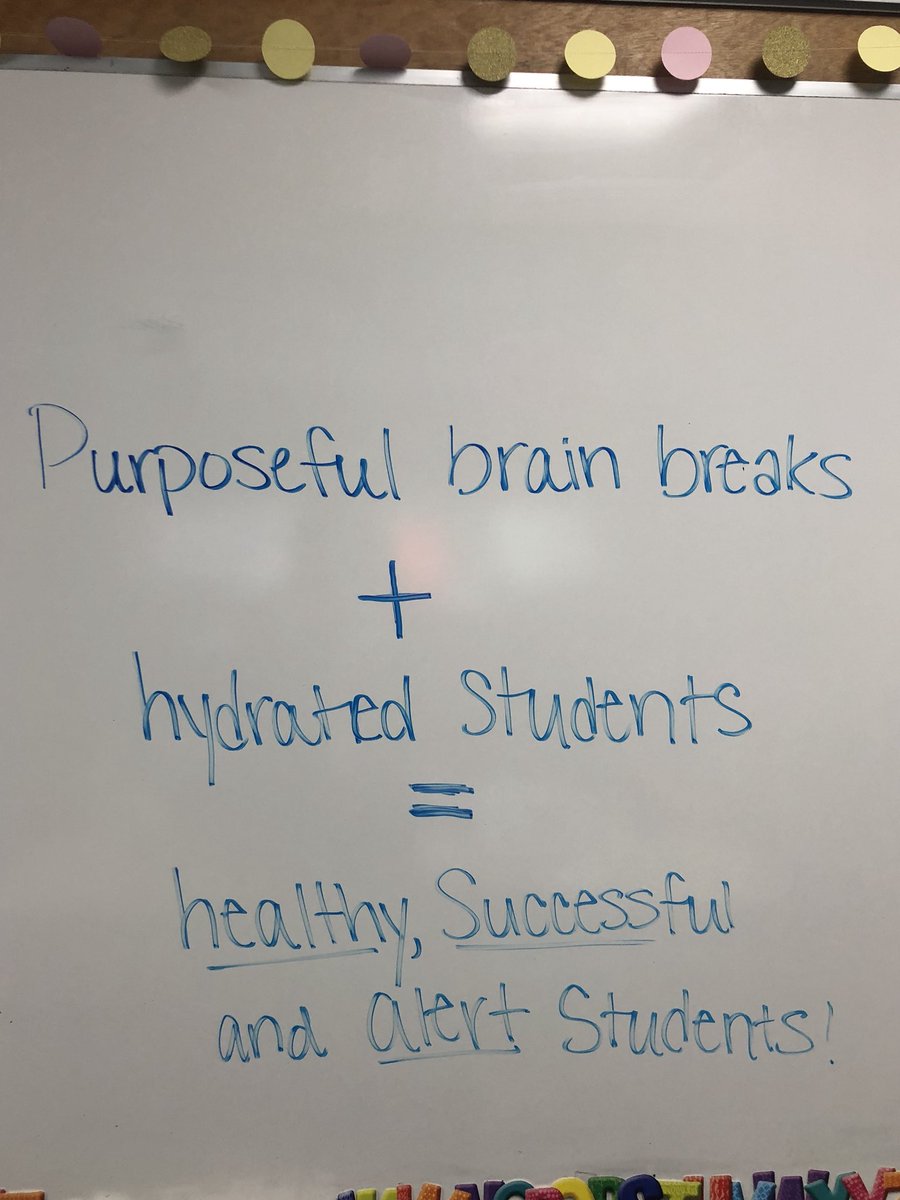 Purposeful brain breaks
+
hydrated Students
=
healthy, Successful
and alert Students!